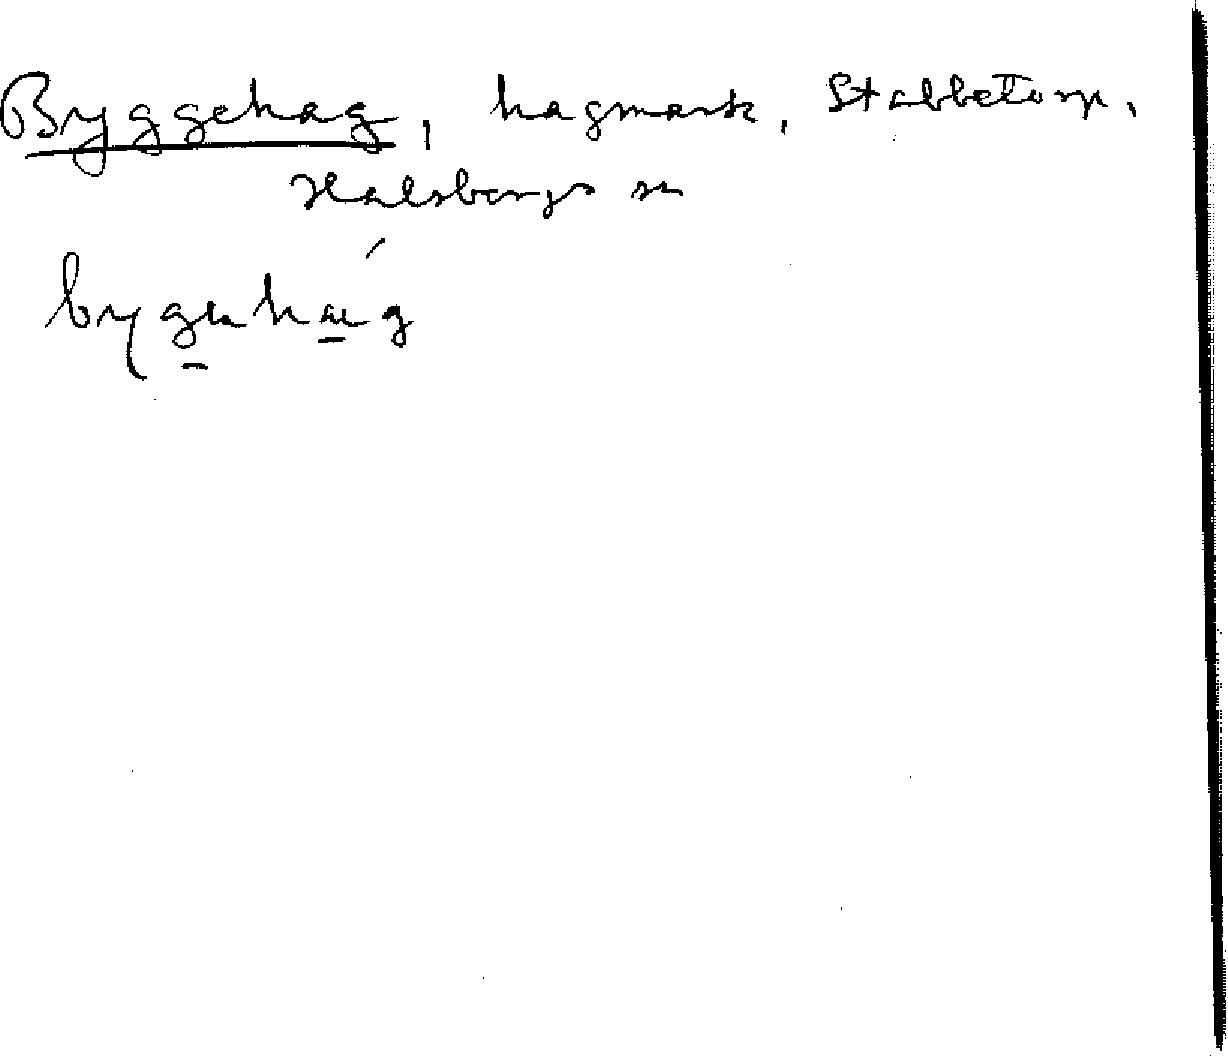 Byggehag, hagmark, Stabbetorp,
Halsbergs sn